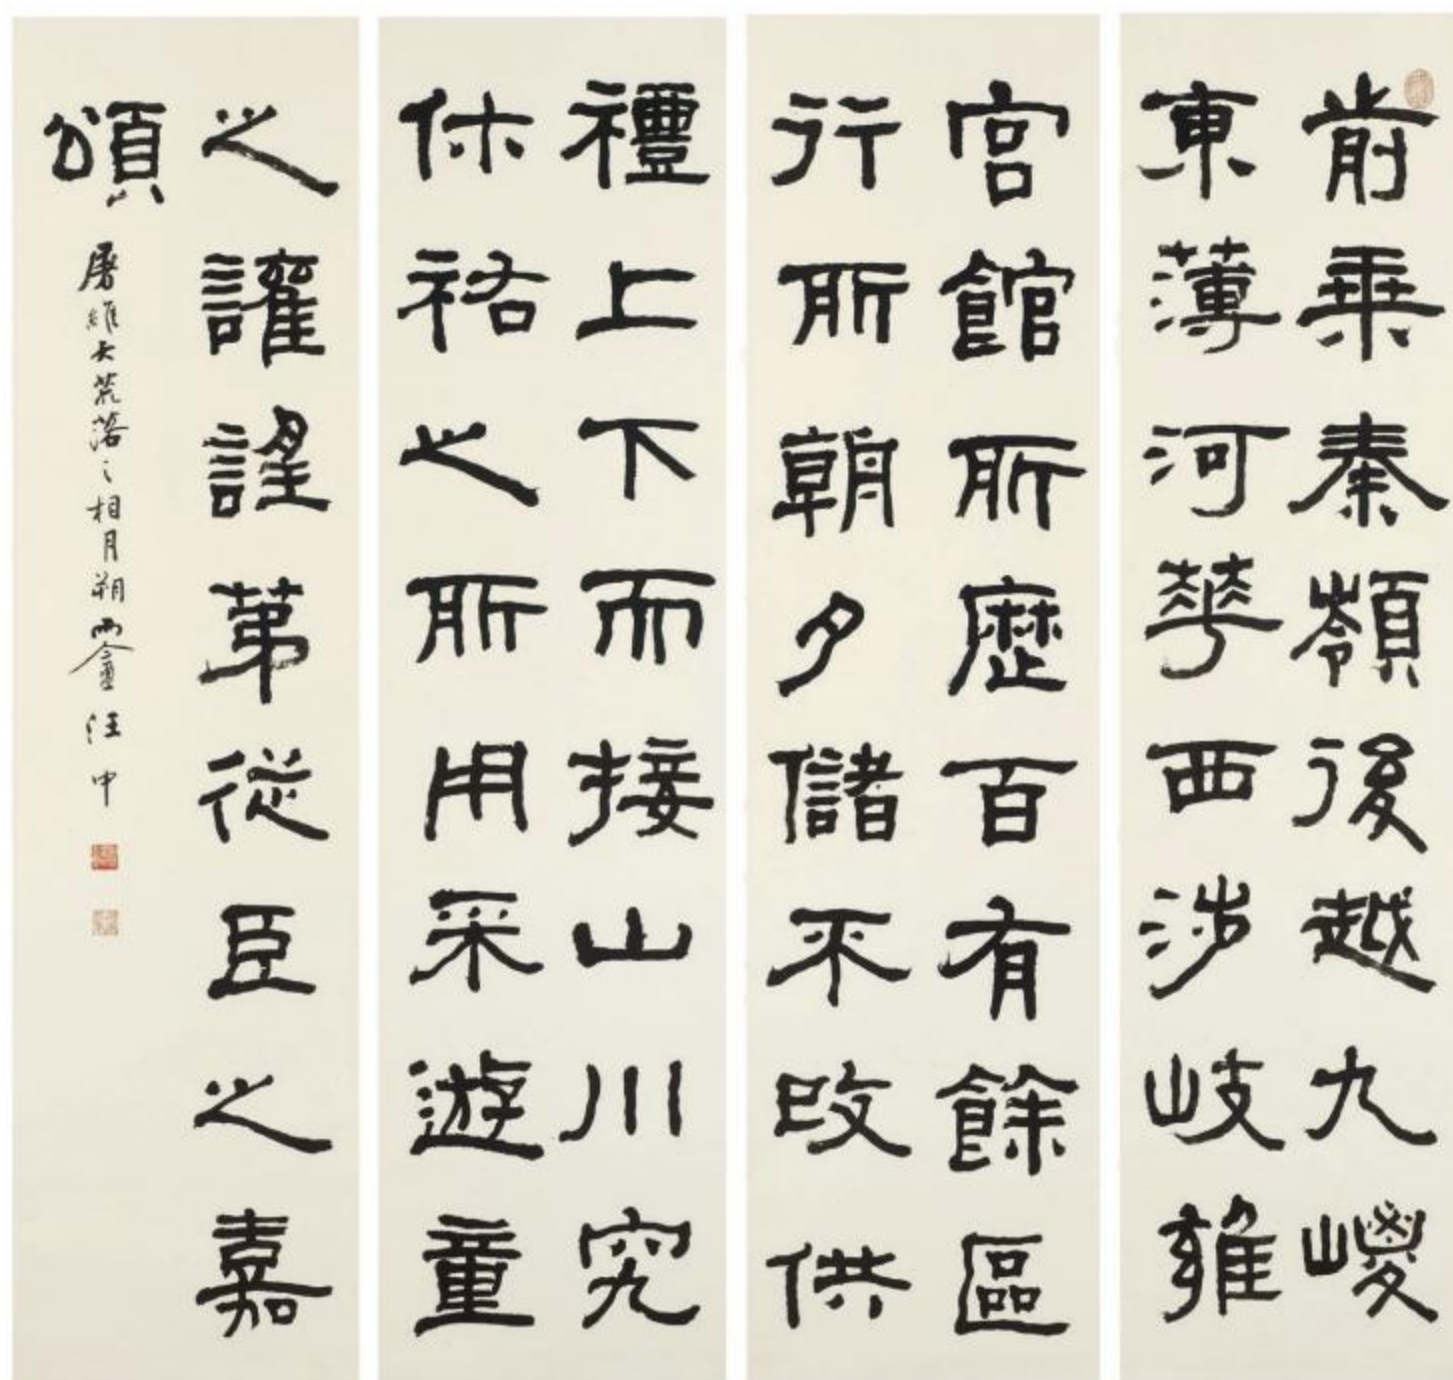 前乘秦嶺後越九嵕
東薄河華西涉岐雍
宮館所歷百有餘區
行所朝夕儲不改供
禮上下而接山川究
休祐之所用采遊童
之讙謠第從臣之嘉
頌
屠維大荒落之相月朔雨盦汪中